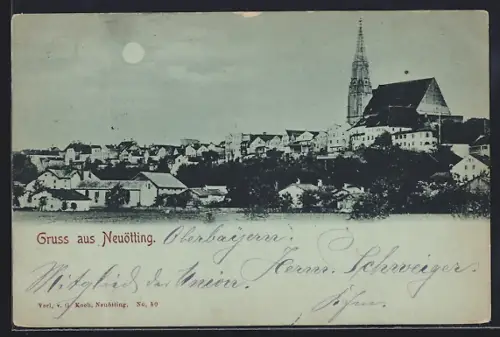 Gruss aus Neuötting. Oberbayern.
Mitglied der Union. Herm. Schweiger.
Verl. v. G. Koch, Neuötting. No. 50